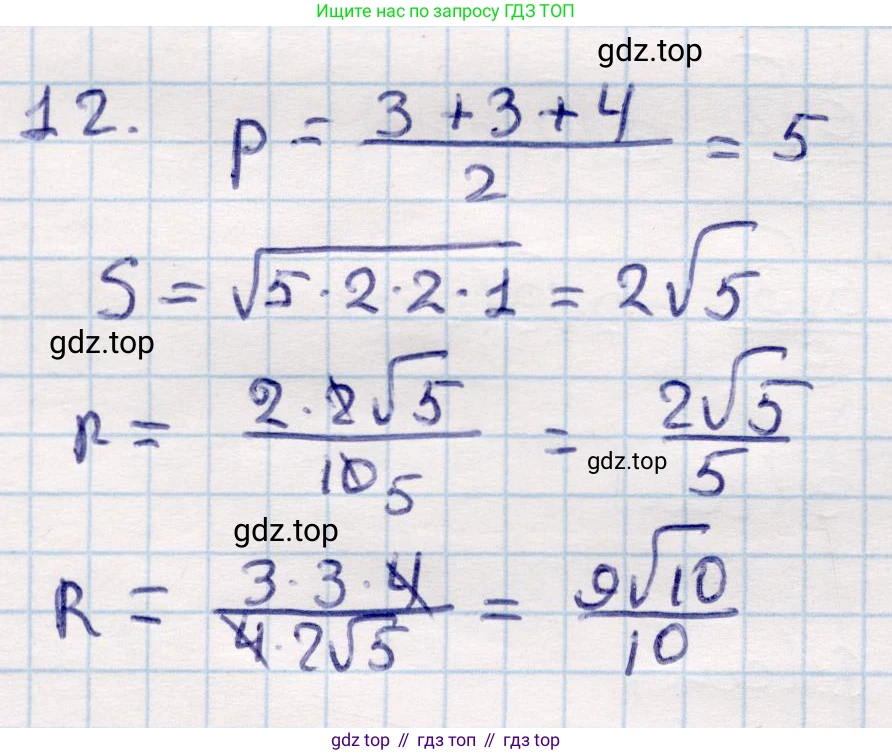 Ищите нас по запросу ГДЗ ТОП
gdz.top
12. p = (3 + 3 + 4)/2 = 5
S = √(5 · 2 · 2 · 1) = 2√5
gdz.top
r = (2 · 2√5)/(10 5) = 2√5/5
gdz.top
gdz.top
R = (3 · 3 · 4)/(4 · 2√5) = 9√10/10
gdz.top // гдз топ // гдз top